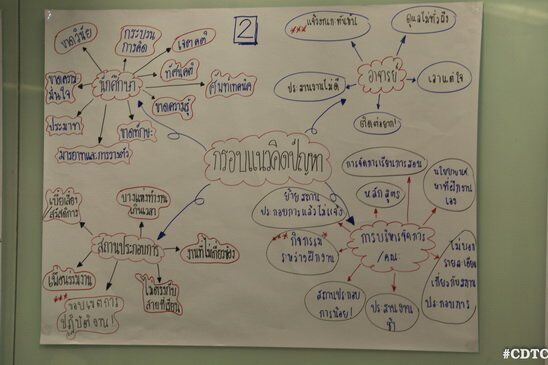 2
ขาดวินัย
กระบวน
การคิด
เจตคติ
แจ้งกะทันหัน
ดูแลไม่ทั่วถึง
ขาดความ
มั่นใจ
นักศึกษา
ทัศนคติ
ศัพท์เทคนิค
อาจารย์
ประสานงานไม่ดี
เอาแต่ใจ
ประหม่า
ขาดทักษะ
ขาดความรู้
ติดต่อยาก!
มารยาทและการวางตัว
กรอบแนวคิดปัญหา
การจัดการเรียนการสอน
หลักสูตร
ย้ายสถาน
ประกอบการแล้วไม่แจ้ง
กิจกรรม
ระหว่างฝึกงาน
การบริหารจัดการ
/คณะ
สถานประกอบ
การน้อย!
ประสานงาน
ช้า
ไม่บอก
รายละเอียด
เกี่ยวกับสถาน
ประกอบการ
สถานประกอบการ
งานที่ไม่เกี่ยวข้อง
เพื่อนร่วมงาน
ไม่ตรงกับ
สายที่เรียน
ขอบเขตการ
ปฏิบัติงาน!
#CDTC